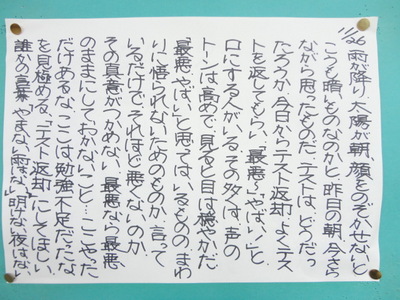 11/26 雨が降り、太陽が朝、顔をのぞかせないと
こうも暗いものなのかと、昨日の朝、今さら
ながら思ったものだ。テストは、どうだっ
たろうか。今日からテスト返却。よくテス
トを返してもらい、「最悪〜」「やばい!」と
口にする人がいる。その多くは、声の
トンは、高めで、見ると目は穏やかだ。
「最悪」「やばい」と思ってはいるものの、まわ
りに悟られないためのものか、言って
いるだけで、それほど悪くないのか、
その真意がつかめない。最悪なら最悪
のままにしておかないこと…、こうやった
だけあるな、ここは勉強不足だったな
を見極める、「テスト返却」にしてほしい。
誰かの言葉「やまない雨はない」「明けない夜はない」